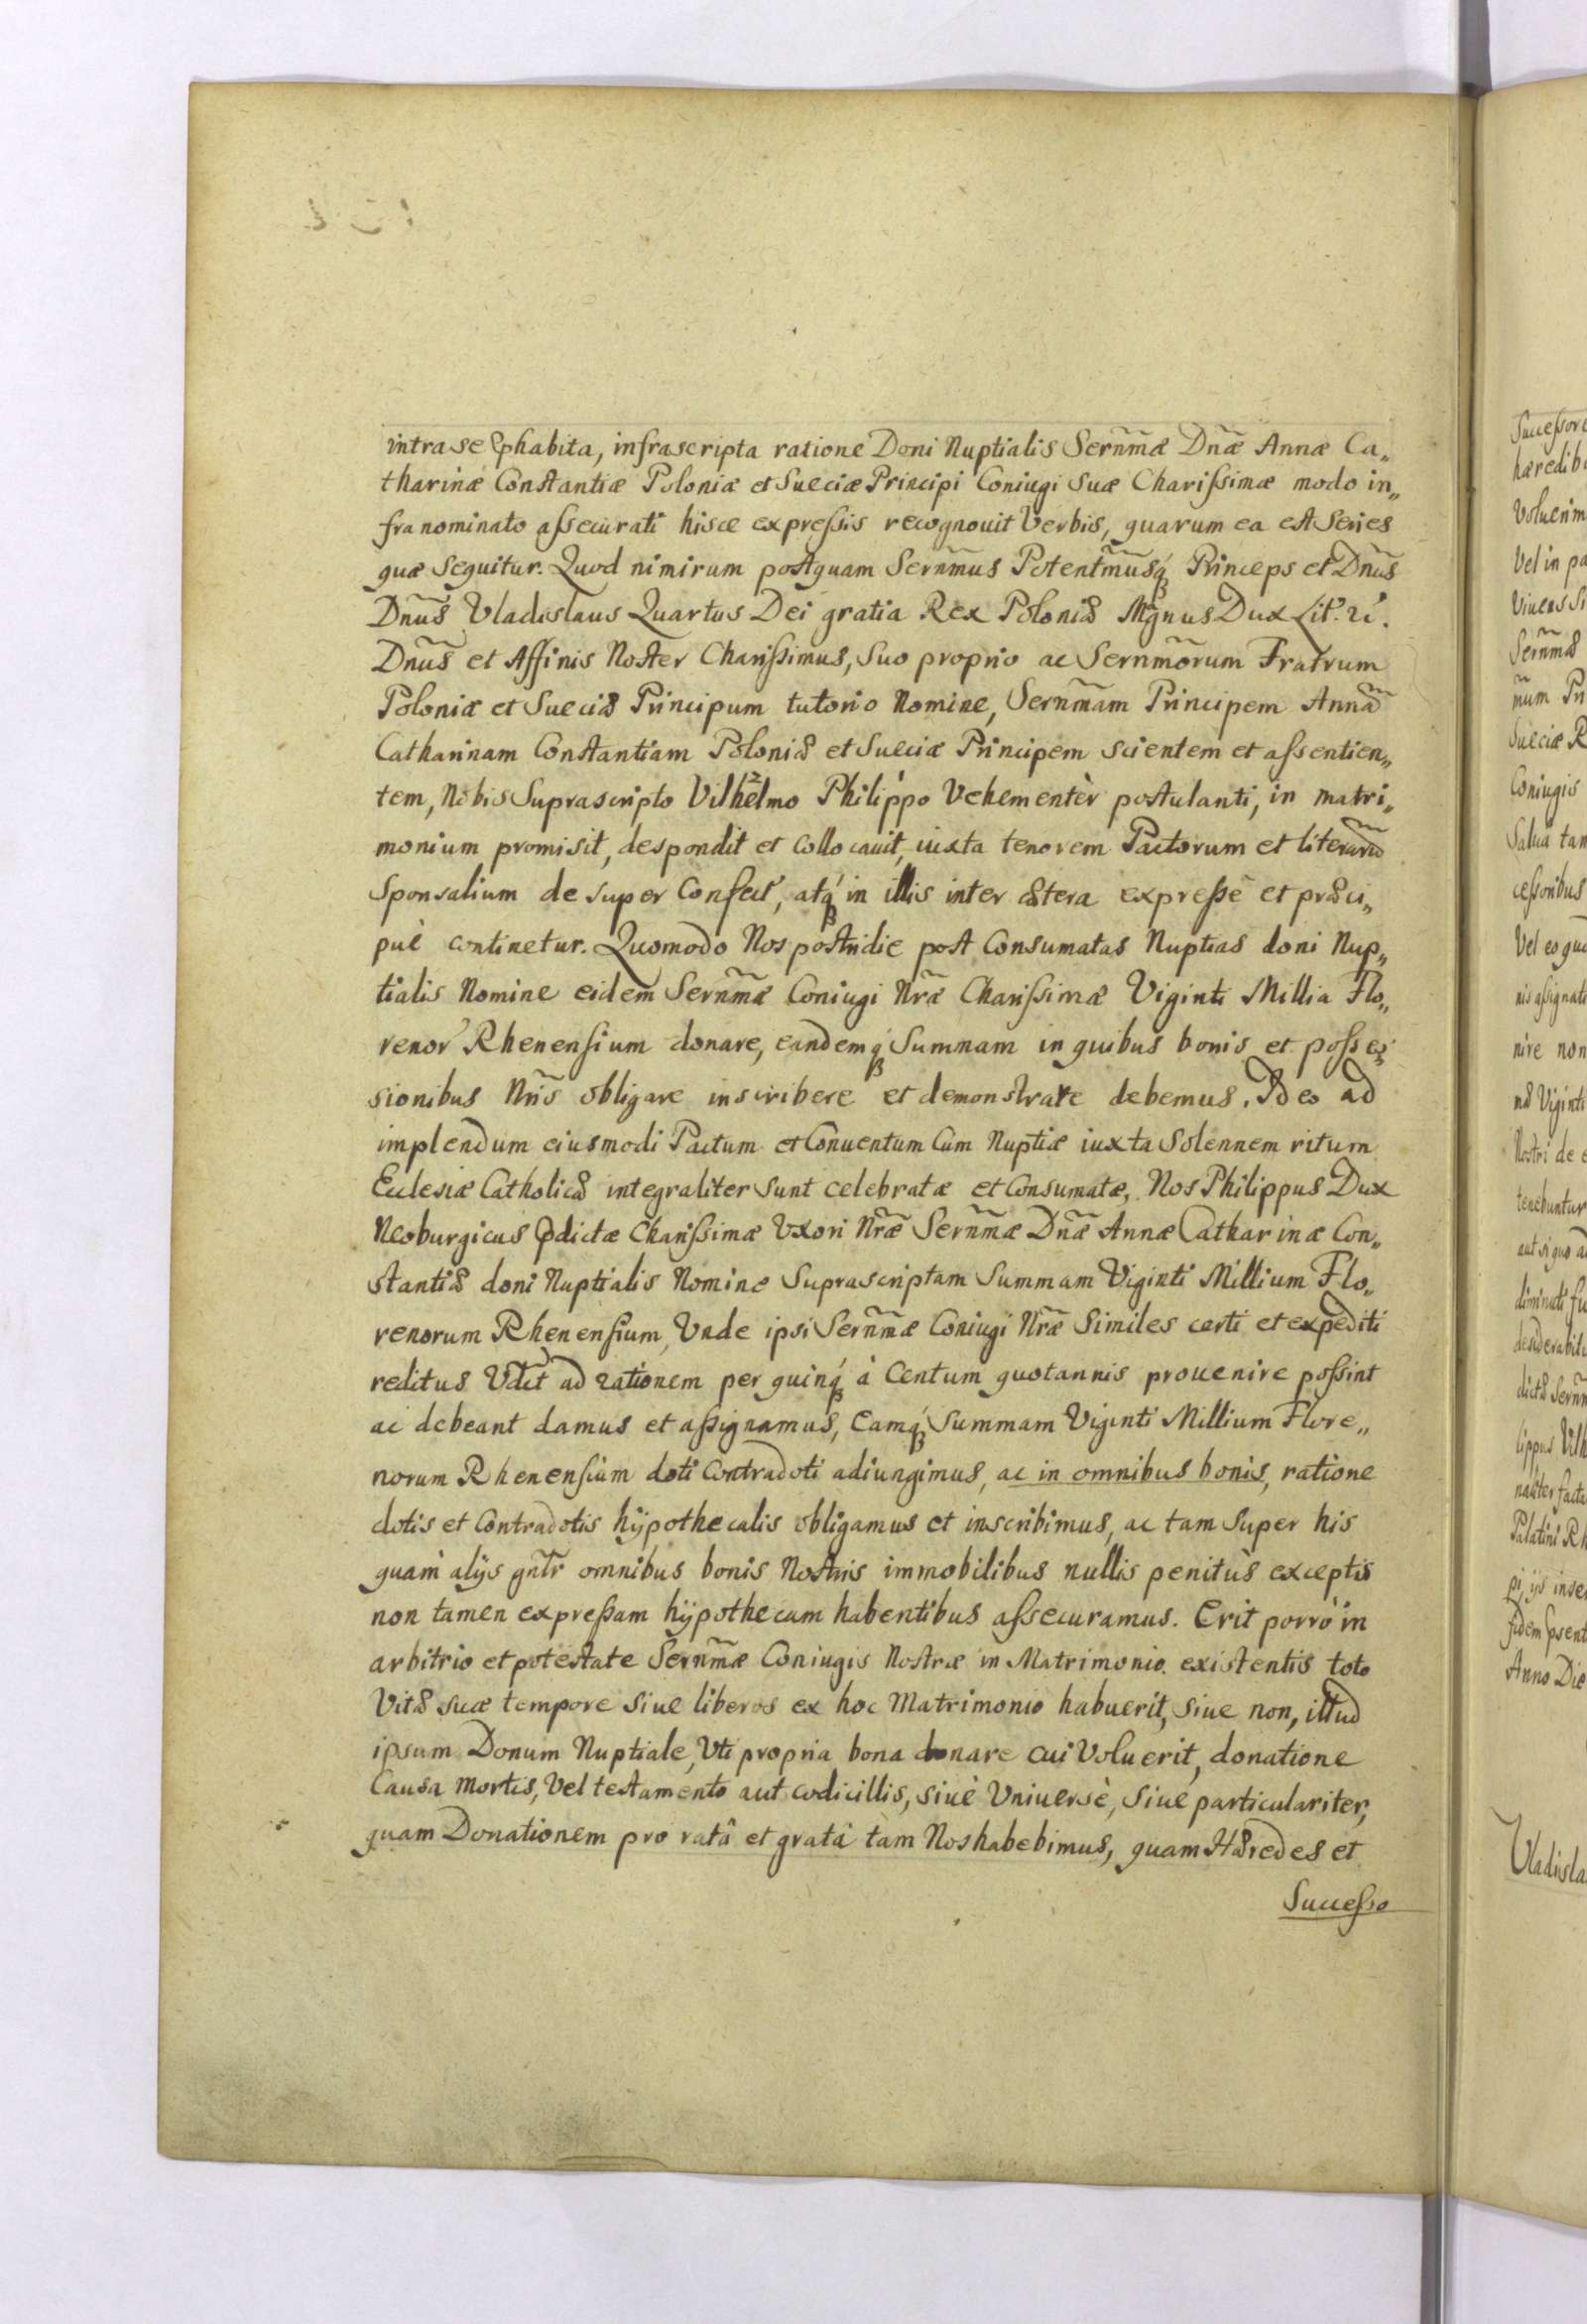 intra se phabita, infrascripta ratione Doni Nuptialis Sernmæ Dnæ Annæ Ca„
tharinæ Constantiæ Poloniæ et Sueciæ Principi Coniugi Suæ Charissimæ modo in„
fra nominato assecurati hisce expressis recognouit Verbis, quarum ea est Series
quæ Sequitur. Quod nimirum postquam Sernmus Potentmusq́ Princeps et Dnus
Dnus Vladislaus Quartus Dei gratia Rex Poloniæ Mgnus Dux Lit.
Dnus et Affinis Noster Charissimus, Suo proprio ac Sernmorum Fratrum
Poloniæ et Sueciæ Principum tutorio Nomine, Sernmam Principem Annã
Catharinam Constantiam Poloniæ et Sueciæ Principem scientem et assentien„
tem, Nobis Suprascripto Vilhelmo Philippo Vehementèr postulanti, in matri„
monium promisit, despondit et collocauit, iuxta tenorem Pactorum et literarũ
Sponsalium de super Confect', atq́ in illis inter cætera expressè et præci„
puè continetur. Quomodo Nos postridie post Consumatas Nuptias doni Nup„
tialis Nomine eidem Sernmæ Coniugi Nræ Charissimæ Viginti Millia Flo„
renor' Rhenensium donare, eandemq́ Summam in quibus bonis et posses
sionibus Nris obligare inscribere et demonstrare debemus. Ideo ad
implendum eiusmodi Pactum et Conuentum Cùm Nuptiæ iuxta Solennem ritum
Ecclesiæ Catholicæ integraliter Sunt celebratæ et Consumatæ, Nos Philippus Dux
Neoburgicus pdictæ Charissimæ Uxori Nræ Sernmæ Dnæ Annæ Catharinæ Con„
stantiæ doni Nuptialis Nomine Suprascriptam Summam Viginti Millium Flo„
renorum Rhenensium, Vnde ipsi Sernmæ Coniugi Nræ Similes certi et expediti
reditus Vdlt ad rationem per quinq́ à Centum quotannis prouenire possint
ac debeant damus et assignamus, Eamq́ Summam Viginti Millium Flore„
norum Rhenensium doti Contradoti adiungimus, ac in omnibus bonis, ratione
dotis et Contradotis hÿpothecalis obligamus et inscribimus, ac tam Super his
quam alijs gnlr omnibus bonis Nostris immobilibus nullis penitùs exceptis
non tamen expressam hÿpothecam habentibus assecuramus. Erit porrò in
arbitrio et potestate Sernmæ Coniugis Nostræ in Matrimonio existentis toto
Vitæ suæ tempore Siue liberos ex hoc Matrimonio habuerit, siue non, illud
ipsum Donum Nuptiale, Vti propria bona donare cui Voluerit, donatione
Causa Mortis, Vel testamento aut codicillis, siuè Vniuersè, Siuè particulariter,
quam Donationem pro ratâ et gratâ tàm Nos habebimus, quam Hæredes et
Successo
Successore
hæredib
Voluerim
Vel in pa
Viuens Si
Sernmæ
num Pri
Sueciæ R
Coniugis
Salua tam
cessoribus
Vel eo quo
nis assignati
nire non
næ Viginti
Nostri de e
tenebuntur
aut si quo a
diminuti fu
desiderabitu
dictæ Sernm
lippus Vilh
naliter facta
Palatini Rh
pi, ijs inse
fidem psent
Anno Die
Vladisla